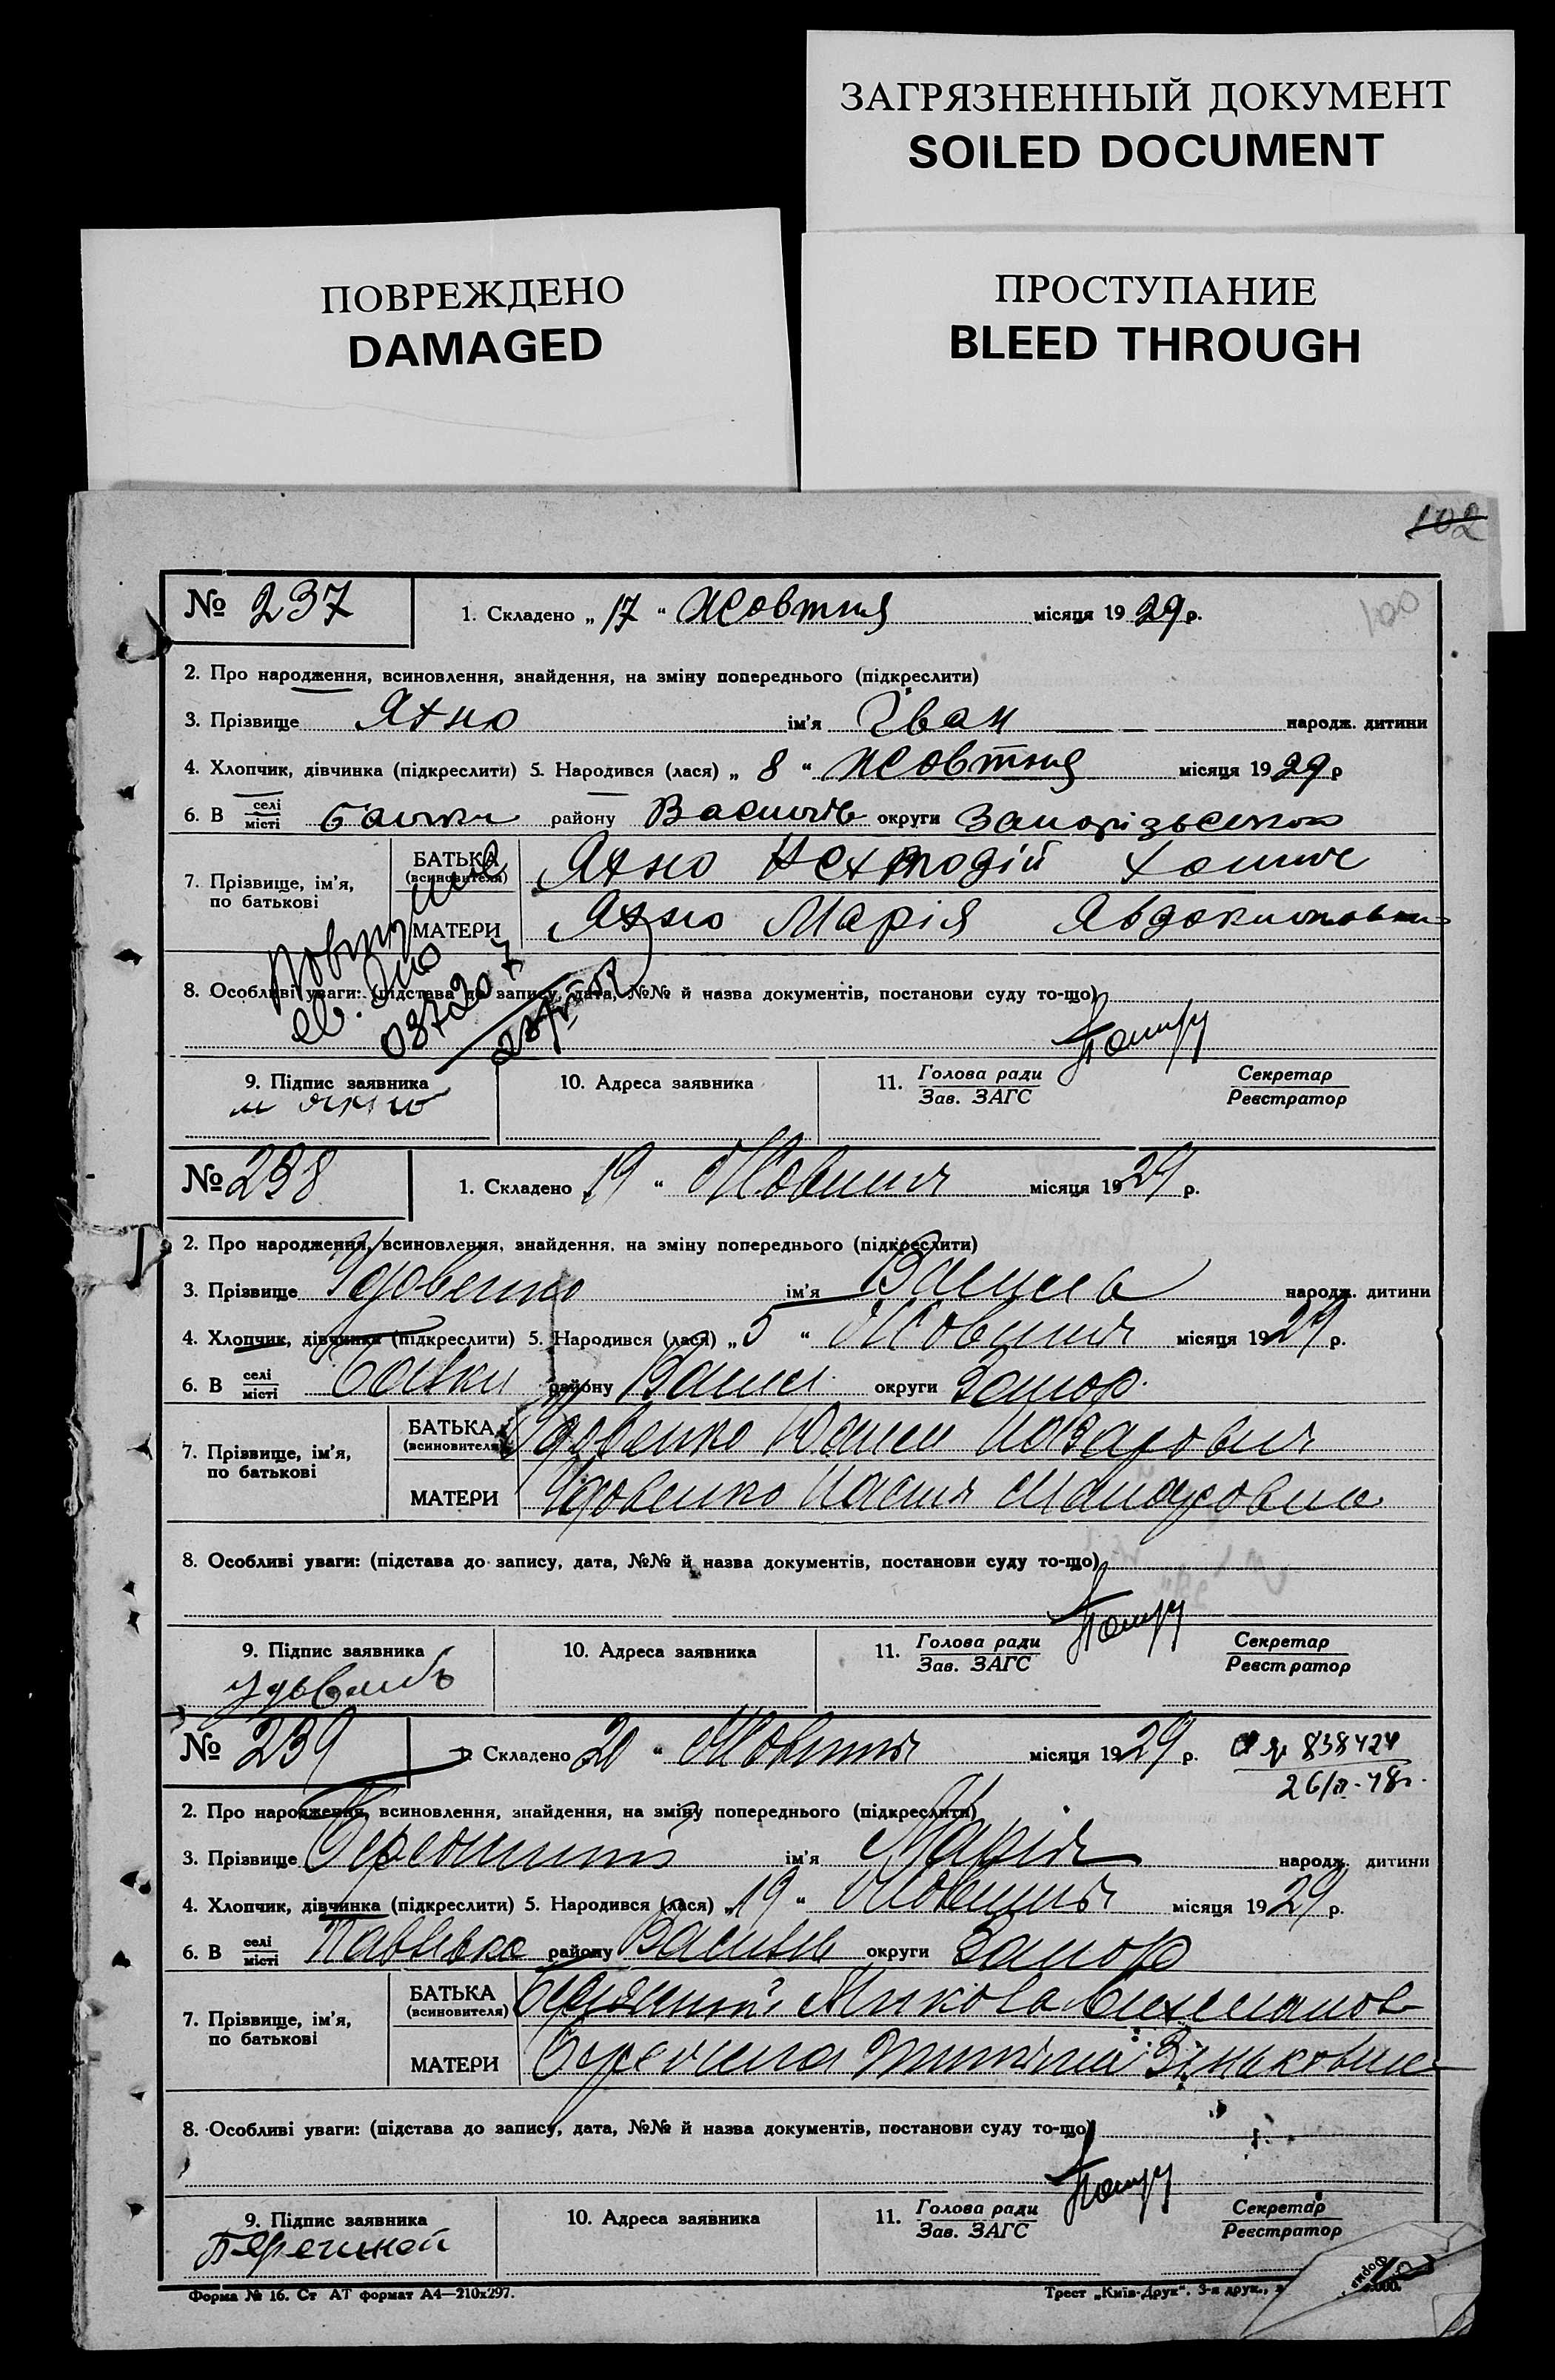 ЗАГРЯЗНЕННЫЙ ДОКУМЕНТ
SOILED DOCUMENT
ПОВРЕЖДЕНО
DAMAGED
ПРОСТУПАНИЕ
BLEED THROUGH
102
100
№ 237 1. Складено „ 17 “ Жовтня місяця 1929 р.
2. Про народження, всиновлення, знайдення, на зміну попереднього (підкреслити)
3. Прізвище Яхно ім'я Іван народж. дитини
4. Хлопчик, дівчинка (підкреслити) 5. Народився (лася) „ 8 “ Жовтня місяця 1929 р
6. В селі/місті Балки району Василів округи Запорізьської
7. Прізвище, ім'я, по батькові
БАТЬКА (всиновителя) Яхно
МАТЕРИ Яхно Марія Явдокимовна
Повторне
св.
8. Особливі уваги: (підстава до запису, дата, №№ й назва документів, постанови суду то-що)
9. Підпис заявника 10. Адреса заявника 11. Голова ради/Зав. ЗАГС Секретар/Реєстратор
№ 238 1. Складено 19 “ Жовтня місяця 1929 р.
2. Про народження, всиновлення, знайдення, на зміну попереднього (підкреслити)
3. Прізвище Удовенко ім'я Василь народж. дитини
4. Хлопчик, дівчинка (підкреслити) 5. Народився (лася) „ 5 “ Жовтня місяця 1929 р.
6. В селі/місті Балки району Васил. округи Запор.
7. Прізвище, ім'я, по батькові
БАТЬКА (всиновителя) Удовенко Назарович
МАТЕРИ Удовенко Настя Макаровна
8. Особливі уваги: (підстава до запису, дата, №№ й назва документів, постанови суду то-що)
9. Підпис заявника 10. Адреса заявника 11. Голова ради/Зав. ЗАГС Секретар/Реєстратор
№ 239 1. Складено 20 “ Жовтня місяця 1929 р.
838424
2. Про народження, всиновлення, знайдення, на зміну попереднього (підкреслити)
3. Прізвище ім'я Марія народж. дитини
4. Хлопчик, дівчинка (підкреслити) 5. Народився (лася) „ 19 “ Жовтня місяця 1929 р.
6. В селі/місті Павлівка району Василів округи Запор
7. Прізвище, ім'я, по батькові
БАТЬКА (всиновителя) Микола
МАТЕРИ Зіньковна
8. Особливі уваги: (підстава до запису, дата, №№ й назва документів, постанови суду то-що)
9. Підпис заявника 10. Адреса заявника 11. Голова ради/Зав. ЗАГС Секретар/Реєстратор
Форма № 16. Ст АТ формат А4—210х297. Трест „Київ-Друк“. 3-я друк.,